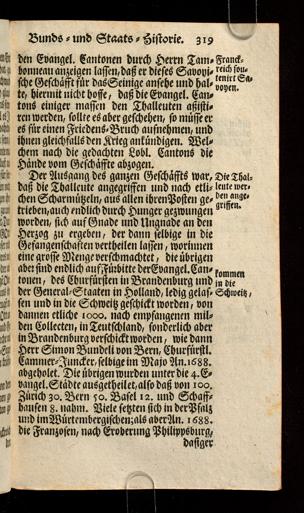 Bunds- und Staats-Historie. 319
den Evangel. Cantonen durch Herrn Tam-
bonneau anzeigen lassen, daß er dieses Savoyi-
sche Geschäfft für das Seinige ansehe und hal-
te, hiermit nicht hoffe, daß die Evangel. Can-
tons einiger massen den Thalleuten assisti-
ren werden, sollte es aber geschehen, so müsse er
es für einen Friedens-Bruch aufnehmen, und
ihnen gleichfalls den Krieg ankündigen. Wel-
chem nach die gedachten Lobl. Cantons die
Hände vom Geschäffte abzogen.
Franck-
reich sou-
tenirt Sa-
voyen.
Der Ausgang des ganzen Geschäffts war,
daß die Thalleute angegriffen und nach etli-
chen Scharmützeln, aus allen ihren Posten ge-
trieben, auch endlich durch Hunger gezwungen
worden, sich auf Gnade und Ungnade an den
Herzog zu ergeben, der dann selbige in die
Gefangenschafften vertheilen lassen, worinnen
eine grosse Menge verschmachtet, die übrigen
aber sind endlich auf Fürbitte der Evangel. Can-
tonen, des Churfürsten in Brandenburg und
der General-Staaten in Holland, ledig gelas-
sen und in die Schweiz geschickt worden, von
dannen etliche 1000. nach empfangenen mil-
den Collecten, in Teutschland, sonderlich aber
in Brandenburg verschickt worden, wie dann
Herr Simon Bundeli von Bern, Churfürstl.
Cammer-Juncker, selbige im Majo An. 1688.
abgeholet. Die übrigen wurden unter die 4. E-
vangel. Städte ausgetheilet, also daß von 100.
Zürich 30. Bern 50. Basel 12. und Schaff-
hausen 8. nahm. Viele setzten sich in der Pfalz
und im Würtembergischen; als aber An. 1688.
die Franzosen, nach Eroberung Philippsburg,
dasiger
Die Thal-
leute wer-
den ange-
griffen.
kommen
in die
Schweiz,